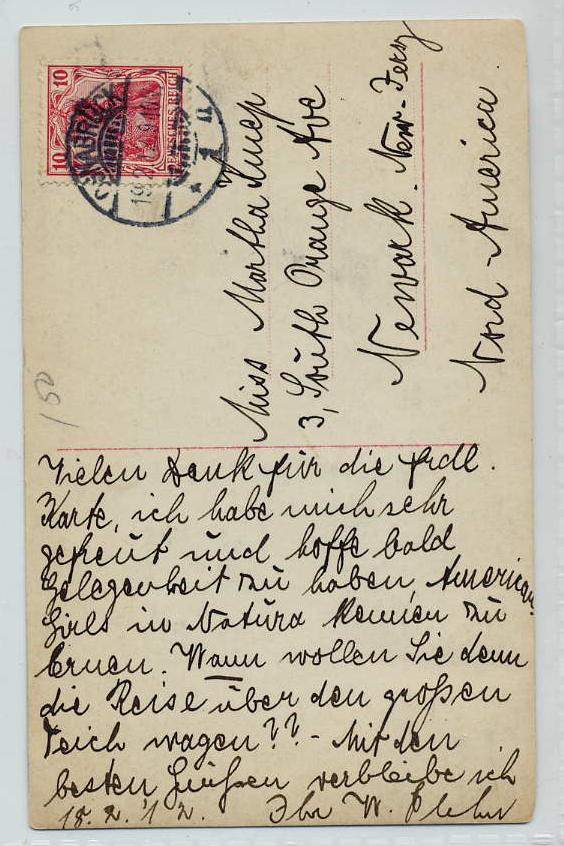 10 10
DEUTSCHES REICH
OSNABRÜCK
Miss Martha
3, South Orange Ave
Newark. New-Jersy
Nord-America.
150
Vielen Dank für die frdl.
Karte, ich habe mich sehr
gefreut und hoffe bald
Gelegenheit zu haben, American
Girls in Natura kennen zu
lernen. Wann wollen Sie denn
die Reise über den großen
Teich wagen?? - Mit den
besten Grüßen verbleibe ich
18.2.12. Ihr W.